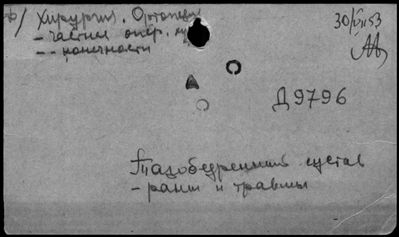 б/ Хирургия. Ортопед
- частная опер.
- - конечности
30/VI 53
Д 9796
Тазобедренный сустав
- раны и травмы